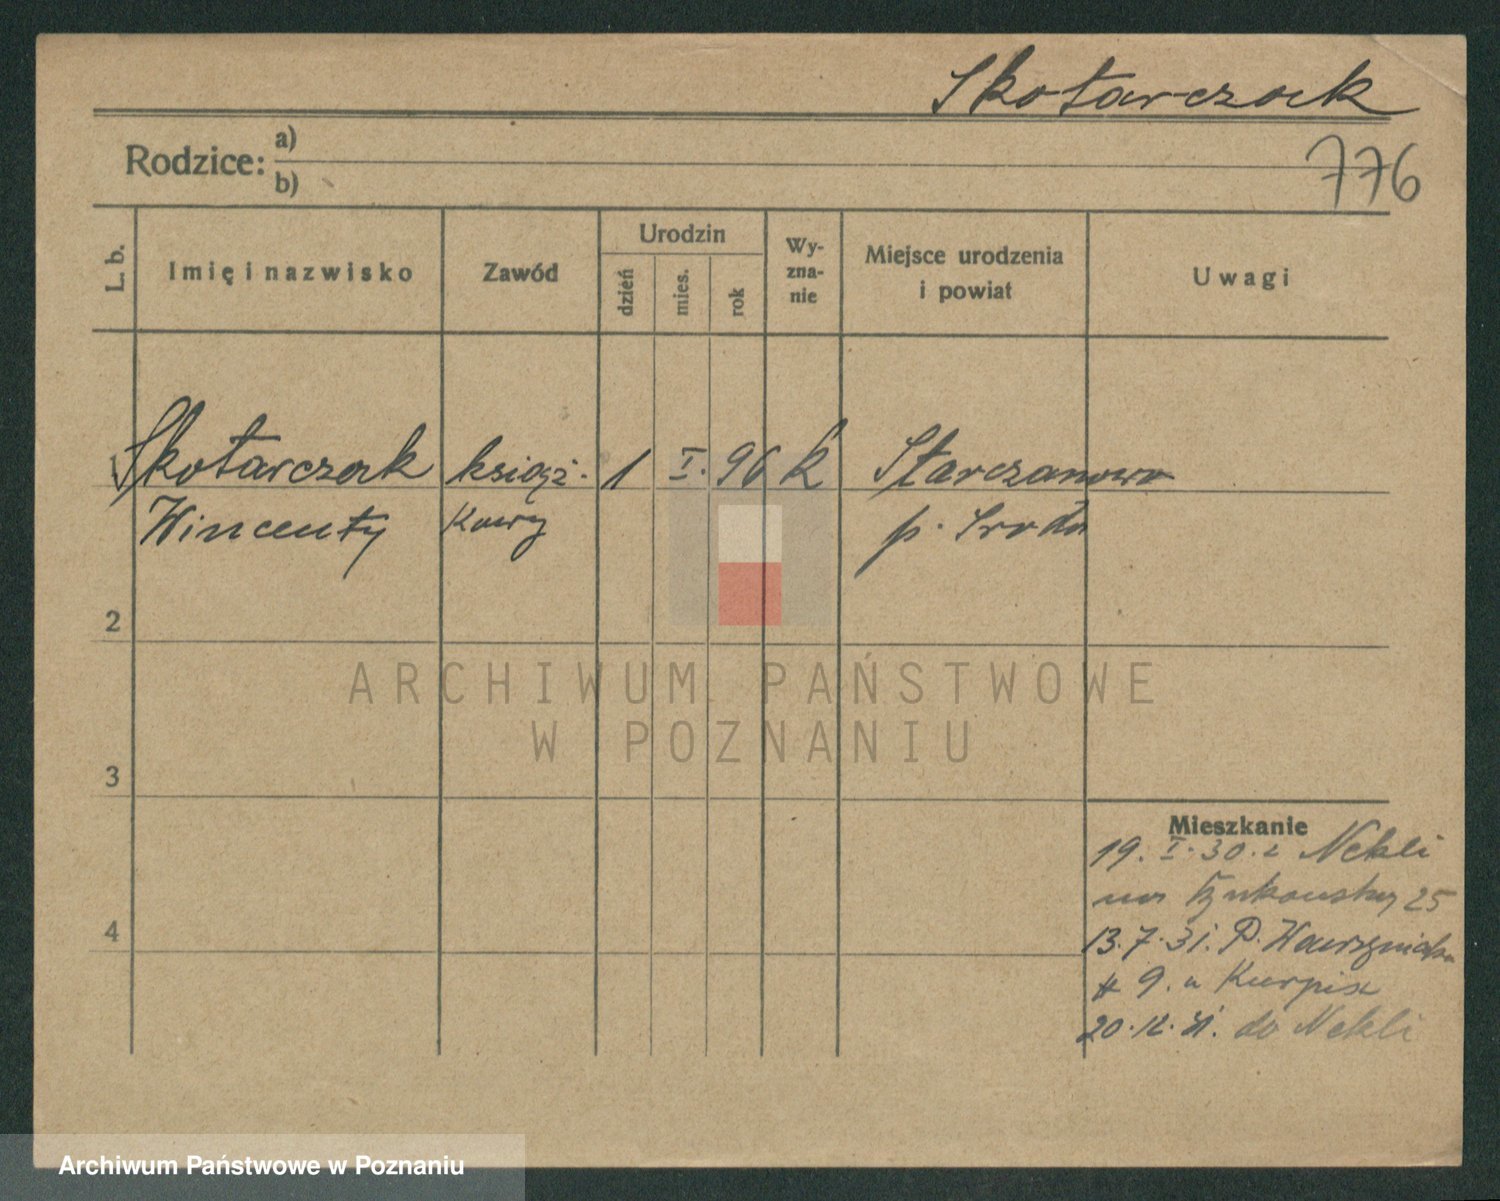 Skotarczak
776
Rodzice: a)
b)
L. b.
Imię i nazwisko
Zawód
Urodzin
dzień
mies.
rok
Wy-
zna-
nie
Miejsce urodzenia
i powiat
Uwagi
1 Skotarczak książ- 1 I. 96 k Starczanowo
Wincenty kowy p. Środa
2
3
4
Mieszkanie
19. I. 30. z Nekli
na 25
13.7.31. P. Wawrzyniaka
9. u Kurpisz
20.12.31. do Nekli
ARCHIWUM PAŃSTWOWE
W POZNANIU
Archiwum Państwowe w Poznaniu